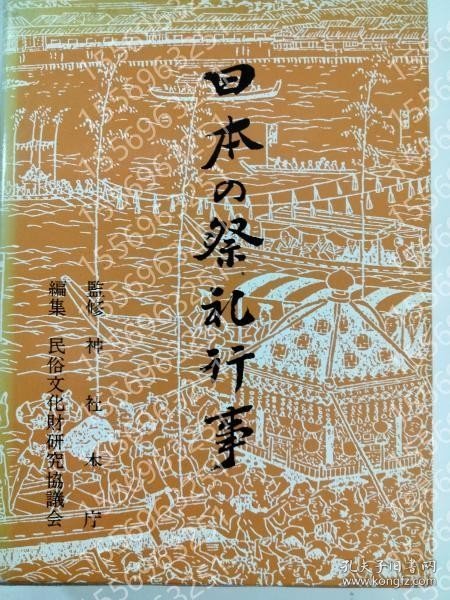 日本の祭礼行事
監修 神社本庁
編集 民俗文化財研究協議会
孔夫子旧书网
www.kongfz.com